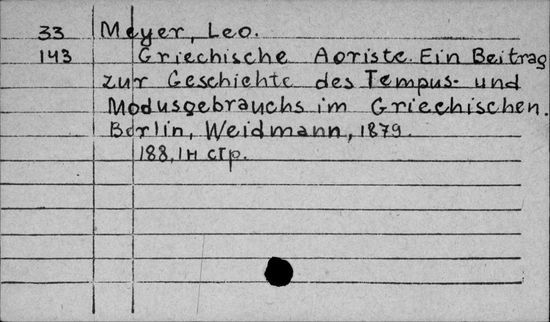 33 Meyer, Leo.
143 Griechische Aoriste. Ein Beitrag
zur Geschichte des Tempus- und
Modusgebrauchs im Griechischen.
Berlin, Weidmann, 1879.
188, 1н стр.